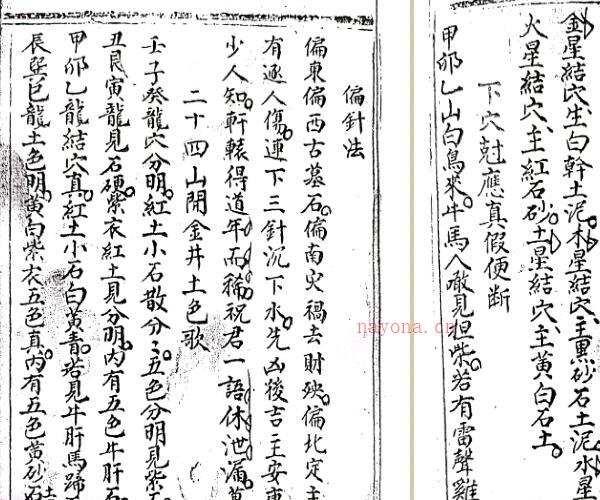 金星結穴生白幹土泥木星結穴主黑砂石土泥水星
火星結穴主紅石砂土星結穴主黃白石土
下穴尅應真假便断
甲卯乙山白鳥來牛馬人敢見担柴若有雷聲雞
偏針法
偏東偏西古墓石偏南火禍去財殃偏北定主
有逐人傷連下三針沉下水先凶後吉主安
少人知軒轅得道年而稀祝君一語休泄漏
二十四山開金井土色歌
壬子癸龍穴分明紅土小石散分〻五色分明見紫石
丑艮寅龍見石硬紫衣紅土見分明内有五色牛肝石
甲卯乙龍結穴真紅土小石白黃青若見牛肝馬蹄
辰巽巳龍土色明黃白紫衣五色真内有五色黃砂石
nayona.cn